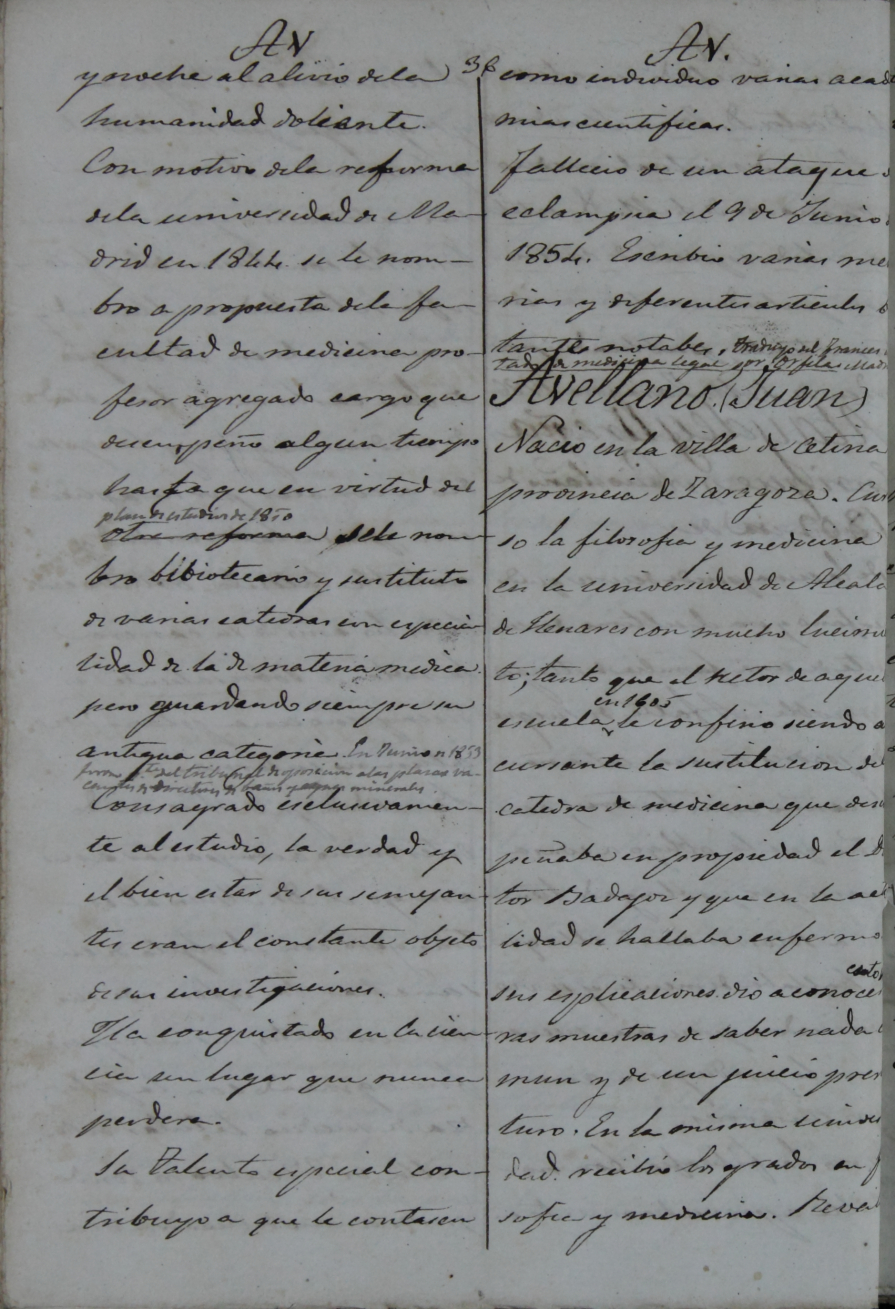 AV
y noche al alivio de la
humanidad doliente.
Con motivo de la reforma
de la universidad de Ma-
drid en 1844. se le nom-
bro a propuesta de la fa-
cultad de medicina pro-
fesor agregado cargo que
desempeño algun tiempo
hasta que en virtud del
plan de estudios de 1850
otra reforma se le nom-
bro bibiotecario y sustituto
de varias catedras con especia-
lidad de la de materia medica
pero guardando siempre su
antigua categoria. En Junio de 1853
del tribunal de oposicion a las plazas va-
cantes de directores de baños y aguas minerales.
Consagrado esclusivamen-
te al estudio, la verdad y
el bien estar de sus semejan-
tes eran el constante objeto
de sus investigaciones.
Ha conquistado en la cien-
cia un lugar que nunca
perdera.
Su talento especial con-
tribuyo a que le contasen
36
AV.
como individuo varias acade
mias cientificas.
Fallecio de un ataque
eclampsia el 9 de Junio
1854. Escribio varias me
rias y diferentes articulos
tantes notables, tradujo del frances
tado de medicina legal por Orfila Mad
Avellano. (Juan)
Nacio en la villa de Cetina
provincia de Zaragoza. Cur
so la filosofia y medicina
en la universidad de Alcala
de Henares con mucho lucimi
to; tanto que el retor de aque
en 1805
escuela le confirio siendo a
cursante la sustitucion de
catedra de medicina que des
peñaba en propiedad el D
tor Badajoz y que en la act
lidad se hallaba enfermo
sus esplicaciones dio a conoce
ras muestras de saber nada
mun y de un juicio pre
turo. En la misma univer
dad. recibio los grados en f
sofia y medicina. Reva